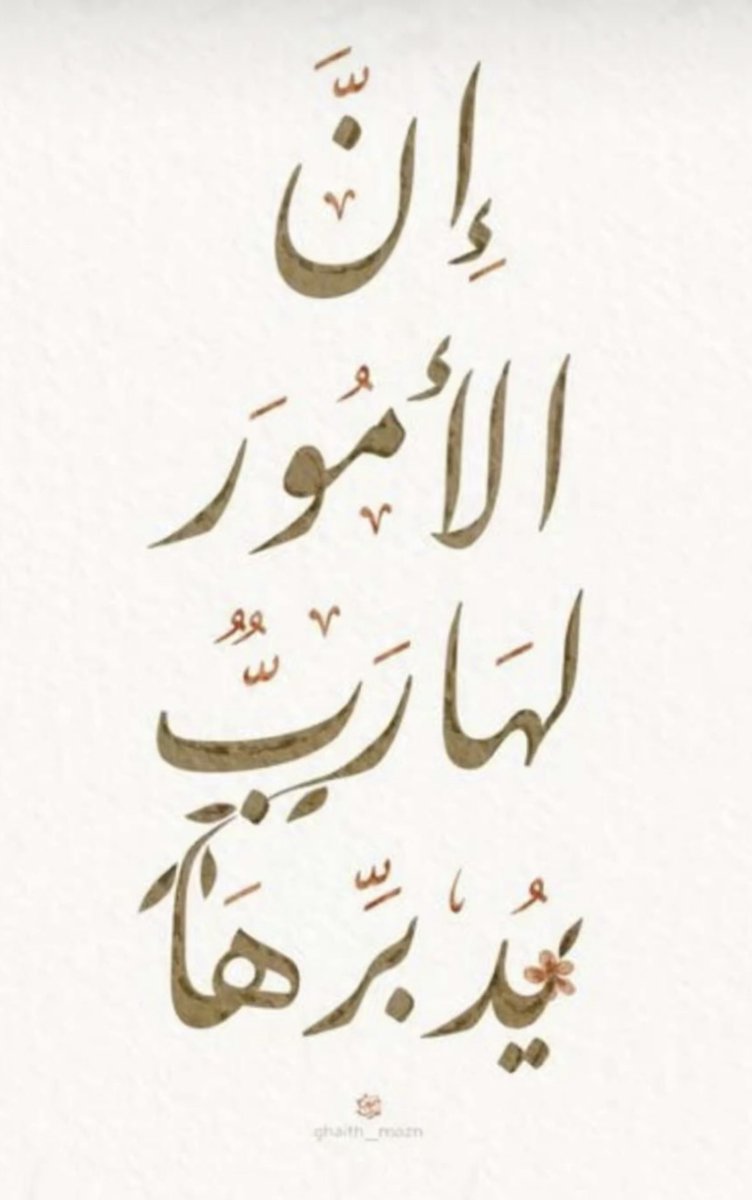 إِنَّ
الأمُورَ
لهَا رَبٌّ
يُدبِّرهَا
ghaith_mozn